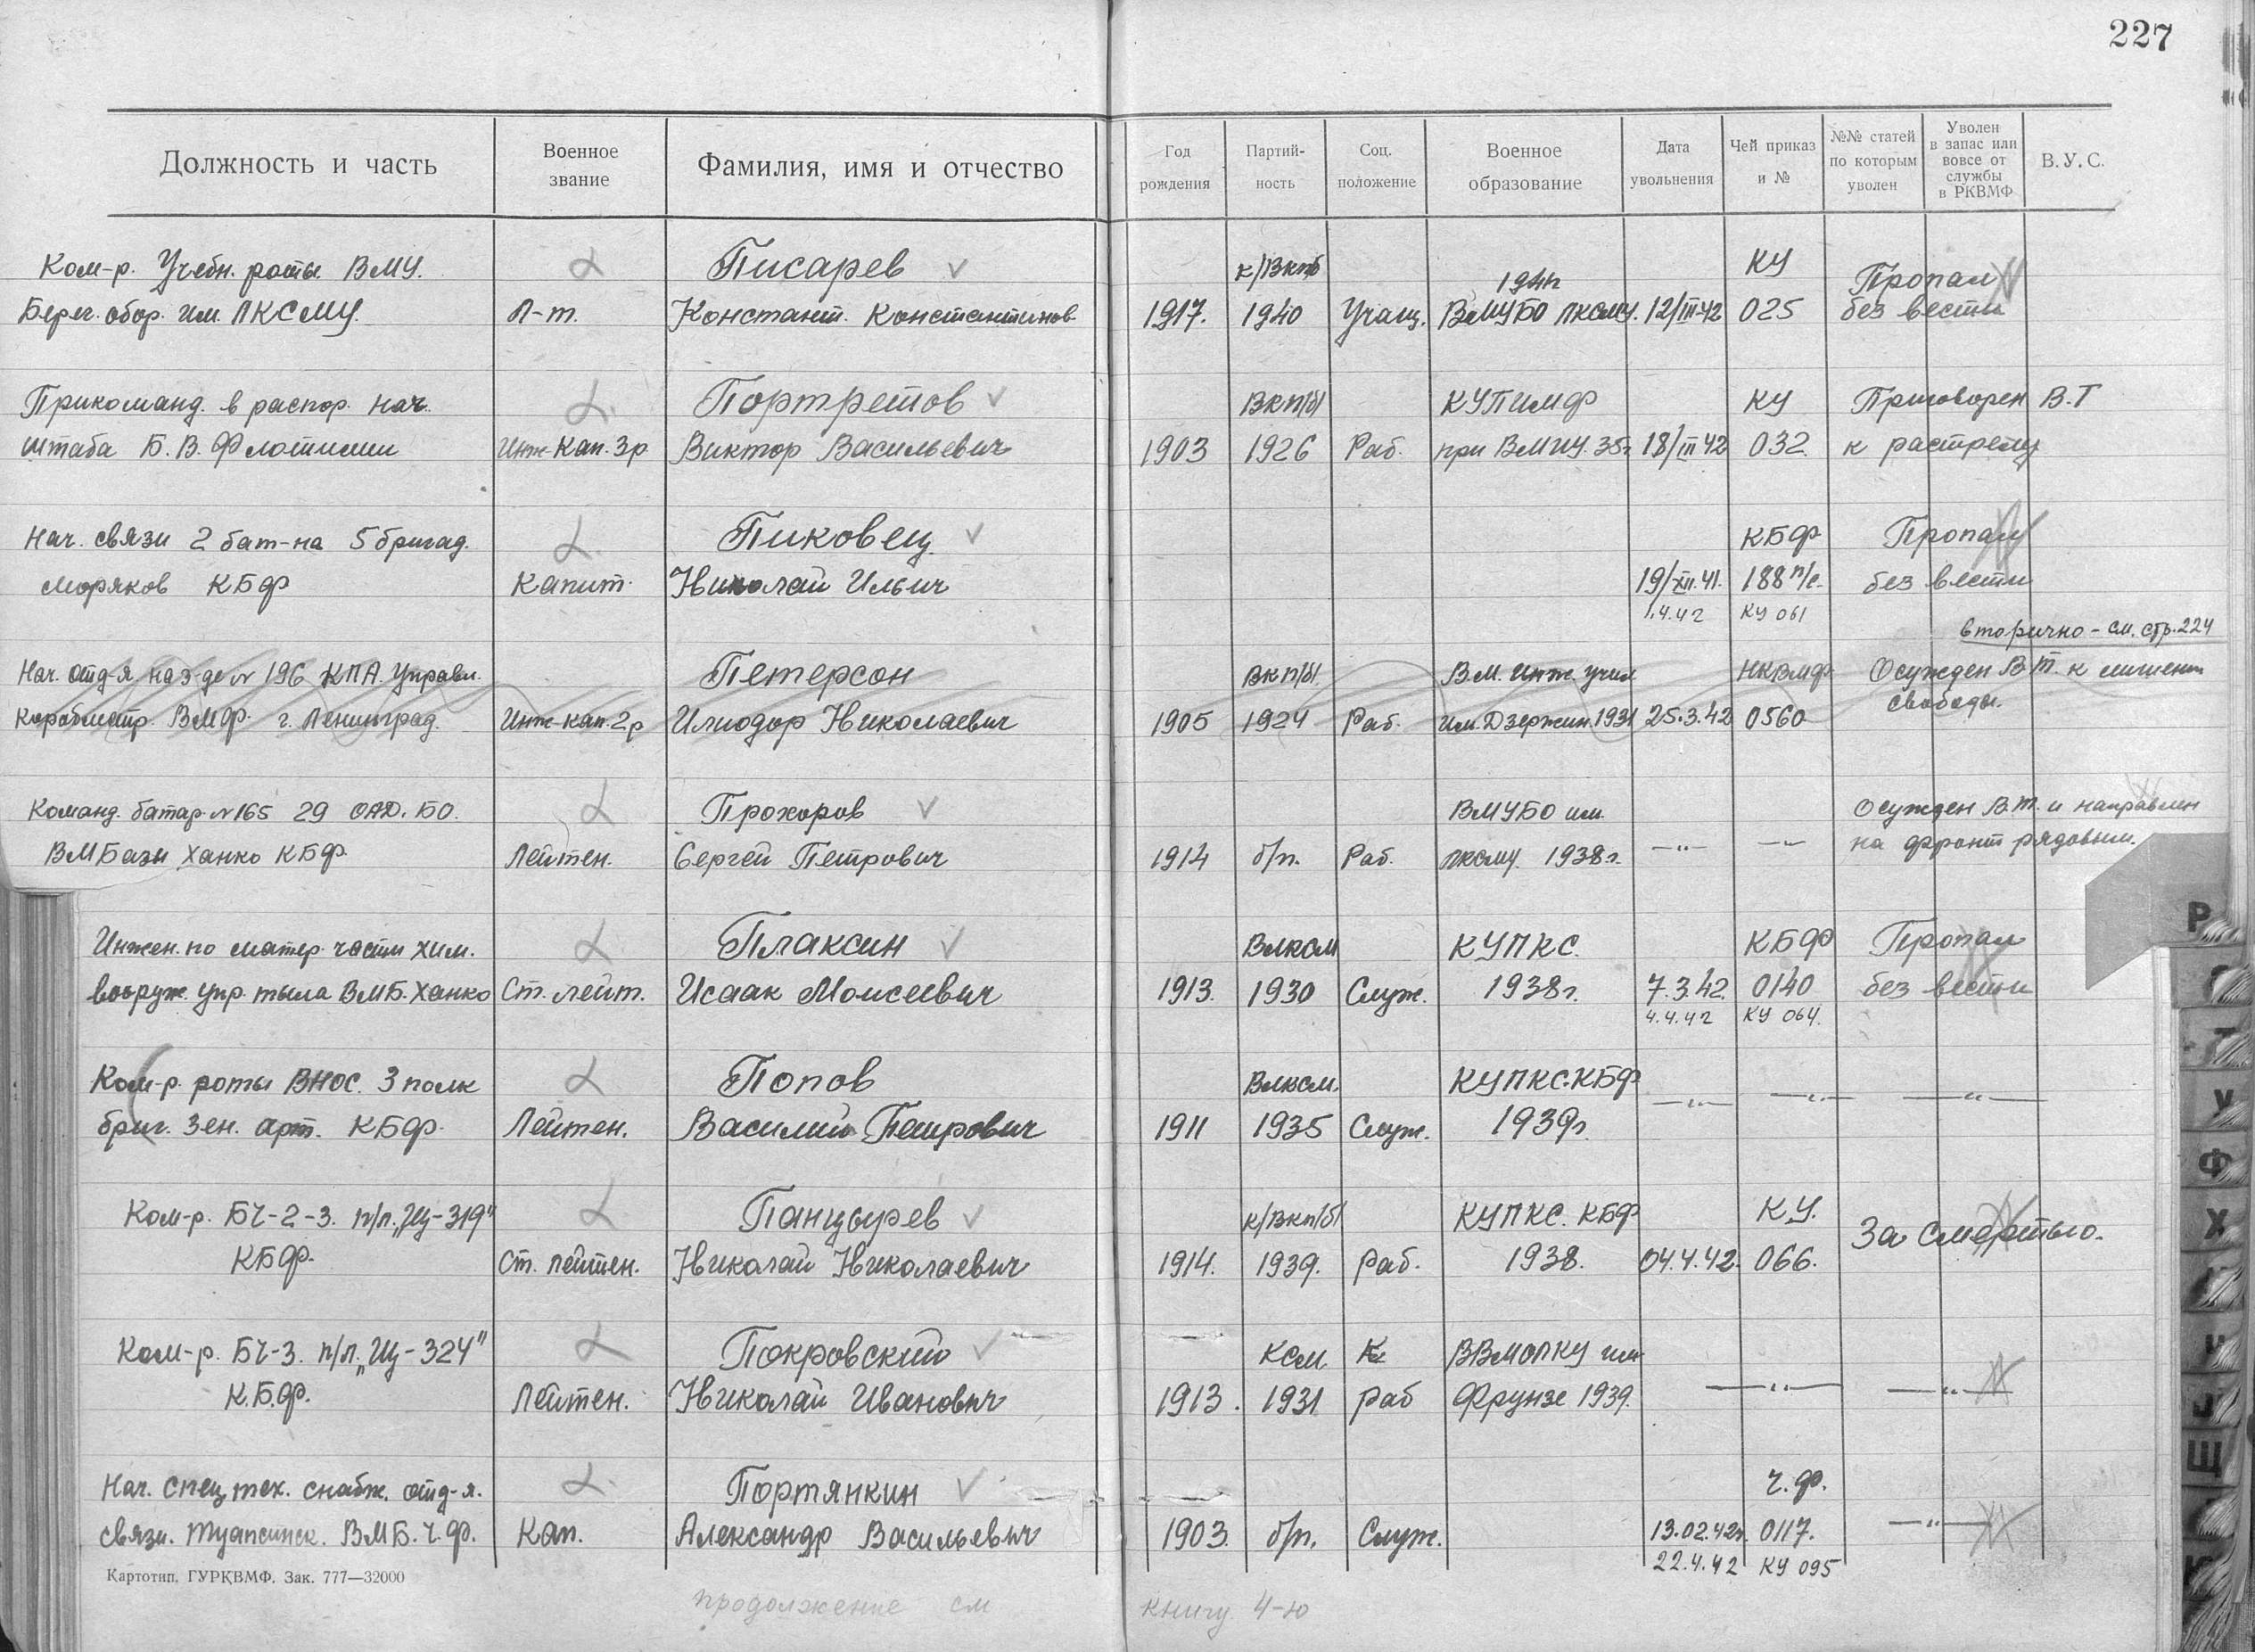 227
Должность и часть
Военное звание
Фамилия, имя и отчество
Год рождения
Партий- ность
Соц. положение
Военное образование
Дата увольнения
Чей приказ и №
№№ статей по которым уволен
Уволен в запас или вовсе от службы в РКВМФ
В.У.С.
Ком-р. Учебн. роты ВМУ. Писарев к/Вкпб 194 КУ Пропал
Берег. обор. им. ЛКСМУ. Л-т. Констант. Константинов 1917. 1940 Учащ. ВМУБО ЛКСМУ. 12/III-42 025 без вести
Прикоманд. в распор. нач. Портретов Вкп/б/ КУПИМФ КУ Приговорен В.Т
штаба Б.В. Флотилии Инж-Кап. 3р Виктор Васильевич 1903 1926 Раб. при ВМИУ. 35г. 18/III 42 032. к растрелу
Нач. связи 2 бат-на 5 бригад. Пиковец КБФ Пропал
моряков КБФ Капит. Николай Ильич 19/XII.41. 188 п/с. без вести
1.4.42 КУ 061
вторично - см. стр. 224
Нач. отд-я на з-де № 196 КПА. Управл. Петерсон Вкп/б/ ВМ. Инж. учил НКВМФ Осужден В.Т. к лишени
Кораблестр. ВМФ. г. Ленинград. Инж-кап. 2р Илиодор Николаевич 1905 1924 Раб. им. Дзержин. 1931 25.3.42 0560 свободы.
Команд. батар. №165 29 ОАД. БО. Прохоров ВМУБО им. Осужден В.Т. и направлен
ВМБазы Ханко КБФ Лейтен. Сергей Петрович 1914 б/п. Раб. лксму. 1938г. —„— —„— на фронт рядовым.
Инжен. по матер. части хим. Плаксин Влксм КУПКС. КБФ Пропал
вооруж. упр. тыла ВМБ. Ханко Ст. лейт. Исаак Моисеевич 1913. 1930 Служ. 1938г. 7.3.42. 0140 без вести
4.4.42 КУ 064.
Ком-р. роты ВНОС. 3 полк Попов Влксм. КУПКС.КБФ —„— —„— —„—
бриг. Зен. арт. КБФ. Лейтен. Василий Петрович 1911 1935 Служ. 1939г.
Ком-р. БЧ-2-3. п/л. „Щ-319" Панцырев к/Вкп/б/ КУПКС. КБФ К.У. За смертью.
КБФ. Ст. лейтен. Николай Николаевич 1914. 1939. Раб. 1938. 04.4.42. 066.
Ком-р. БЧ-3. п/л. „Щ-324" Покровский Ксм ВВМОЛКУ им —„— —„—
К.Б.Ф. Лейтен. Николай Иванович 1913. 1931 раб Фрунзе 1939.
Нач. спец тех. снабж. отд-я. Портянкин Ч.Ф. —„—
связи. Туапсинск. ВМБ. Ч.Ф. Кап. Александр Васильевич 1903. б/п. Служ. 13.02.42г. 0117.
22.4.42 КУ 095
Картотип. ГУРКВМФ. Зак. 777—32000
продолжение см книгу 4-ю
Р
Т
У
Ф
Х
Щ